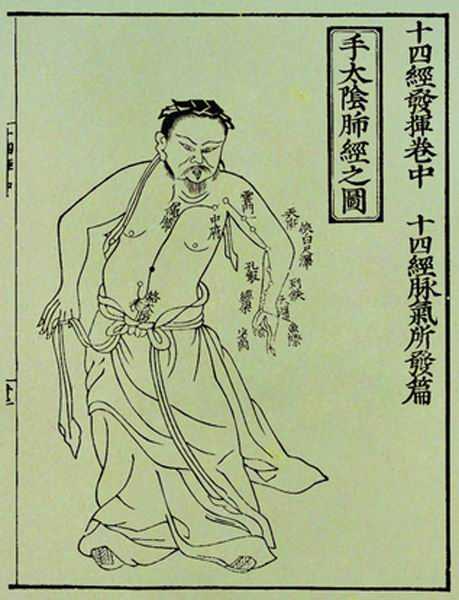 十四經發揮卷中　十四經脉氣所發篇
手太陰肺經之圖
雲門
中府
天府
俠白尺澤
孔最
列缺
經渠
魚際
少商